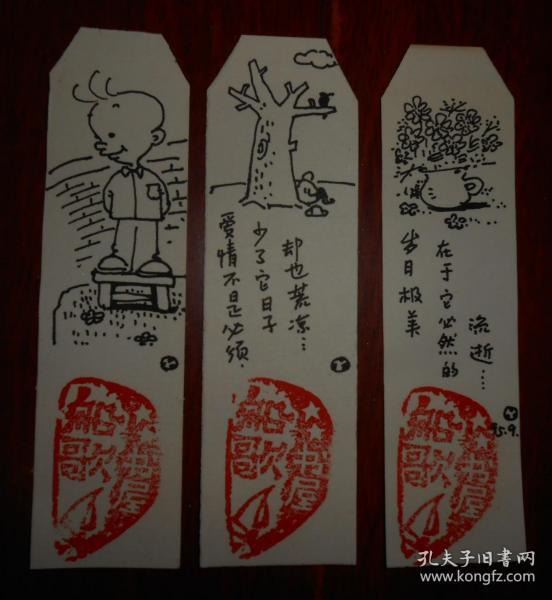 爱情不是必须，
少了它日子
却也荒凉…
船歌
书屋
船歌
书屋
岁月极美
在于它必然的
流逝…
95.9.
船歌
书屋
孔夫子旧书网
www.kongfz.com